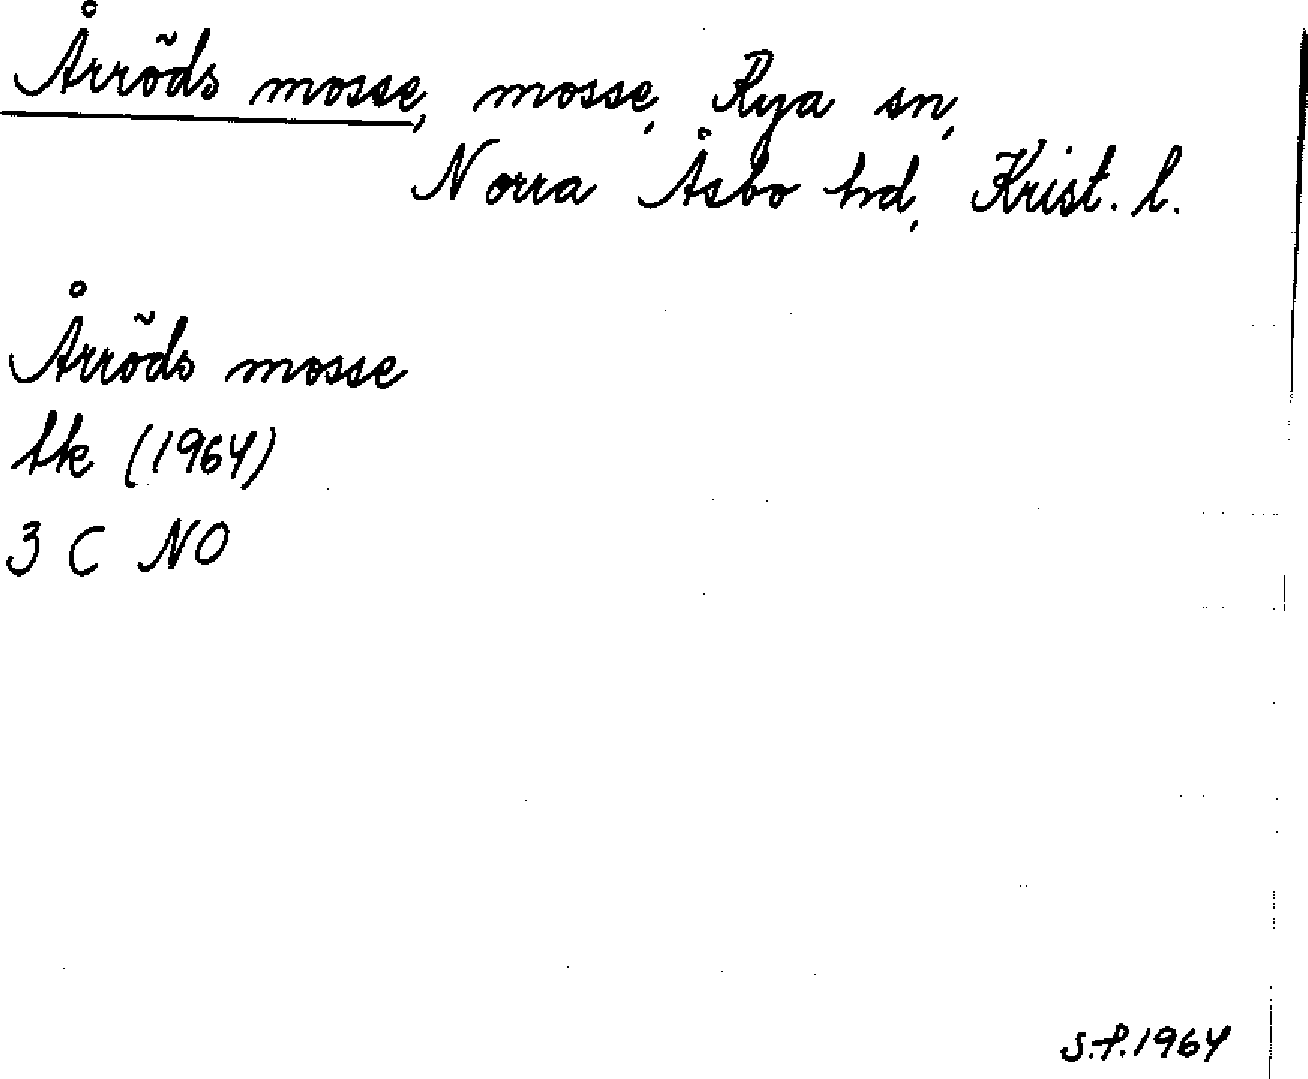 Årröds mosse, mosse, Rya sn,
Norra Åsbo hd, Krist. l.
Årröds mosse
tk (1964)
3 C NO
S.P. 1964